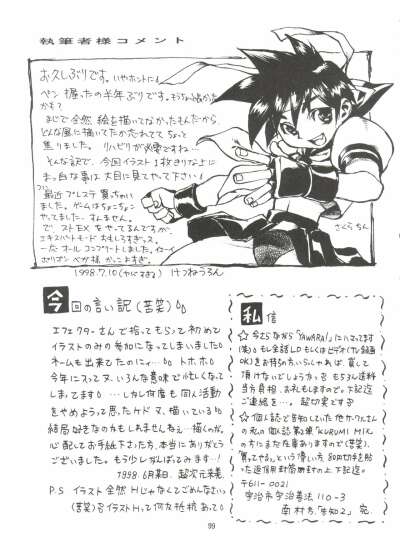 執筆者様コメント
お久しぶりです。いやホントに!
ペン握ったの半年ぶりです。
かも?
まじで全然絵を描いてなかったもんだから、
どんな風に描いてたか忘れてて ちょっと
焦りました。リハビリが必要ですね…
そんな訳で、今回イラスト1枚きりな上に
まっ白な事は大目に見てやって下さい!
最近プレステ買っちゃい
ました。ゲームはちょこちょこ
やってました。すんません。
で、ストEXをやってるんですが、
エキスパートモードおもしろすぎっス。
一応オールコンプリートしました。イエーイ
かっこよすぎ。
1998.7.10
さくらちん
今回の言い訳(苦笑)
エフェクターさんで拾ってもらって初めて
イラストのみの参加になってしまいました
ネームも出来てたのにィ… トホホ
今年に入ってス、いろんな意味で忙しくなって
しまってます …しかし何度も同人活動
をやめようって思ったケドマ、描いている
結局好きなのかもしれませんねェ…描くのが。
心配してお手紙下さった方、本当にありがとう
ございました。もう少しがんばってみます…!
1998.6月某日、超次元来美
P.S イラスト全然Hじゃなくてごめんなさい
(苦笑)今回イラストHって何な抵抗あって
私信
☆今さらながら「YAWARA!」にハマってます
(笑) もし全話LDもしくはビデオ(TV録画
OK)をお持ちの方いらしゃれば、貸して
頂けないでしょうか。もちろん送料
当方負担、お礼もしますので。下記迄
ご連絡を…。超切実です
☆個人誌で告知していた他サークルさん
の私の個人誌第2集「KURUMI MIX」
の方にまだ在庫ありますので(苦笑)、
買ってやる。という優しい方、80円切手を貼
った返信用封筒同封の上、下記迄。
〒611-0021
宇治市宇治善法110-3
南村方「告知2」宛。
99